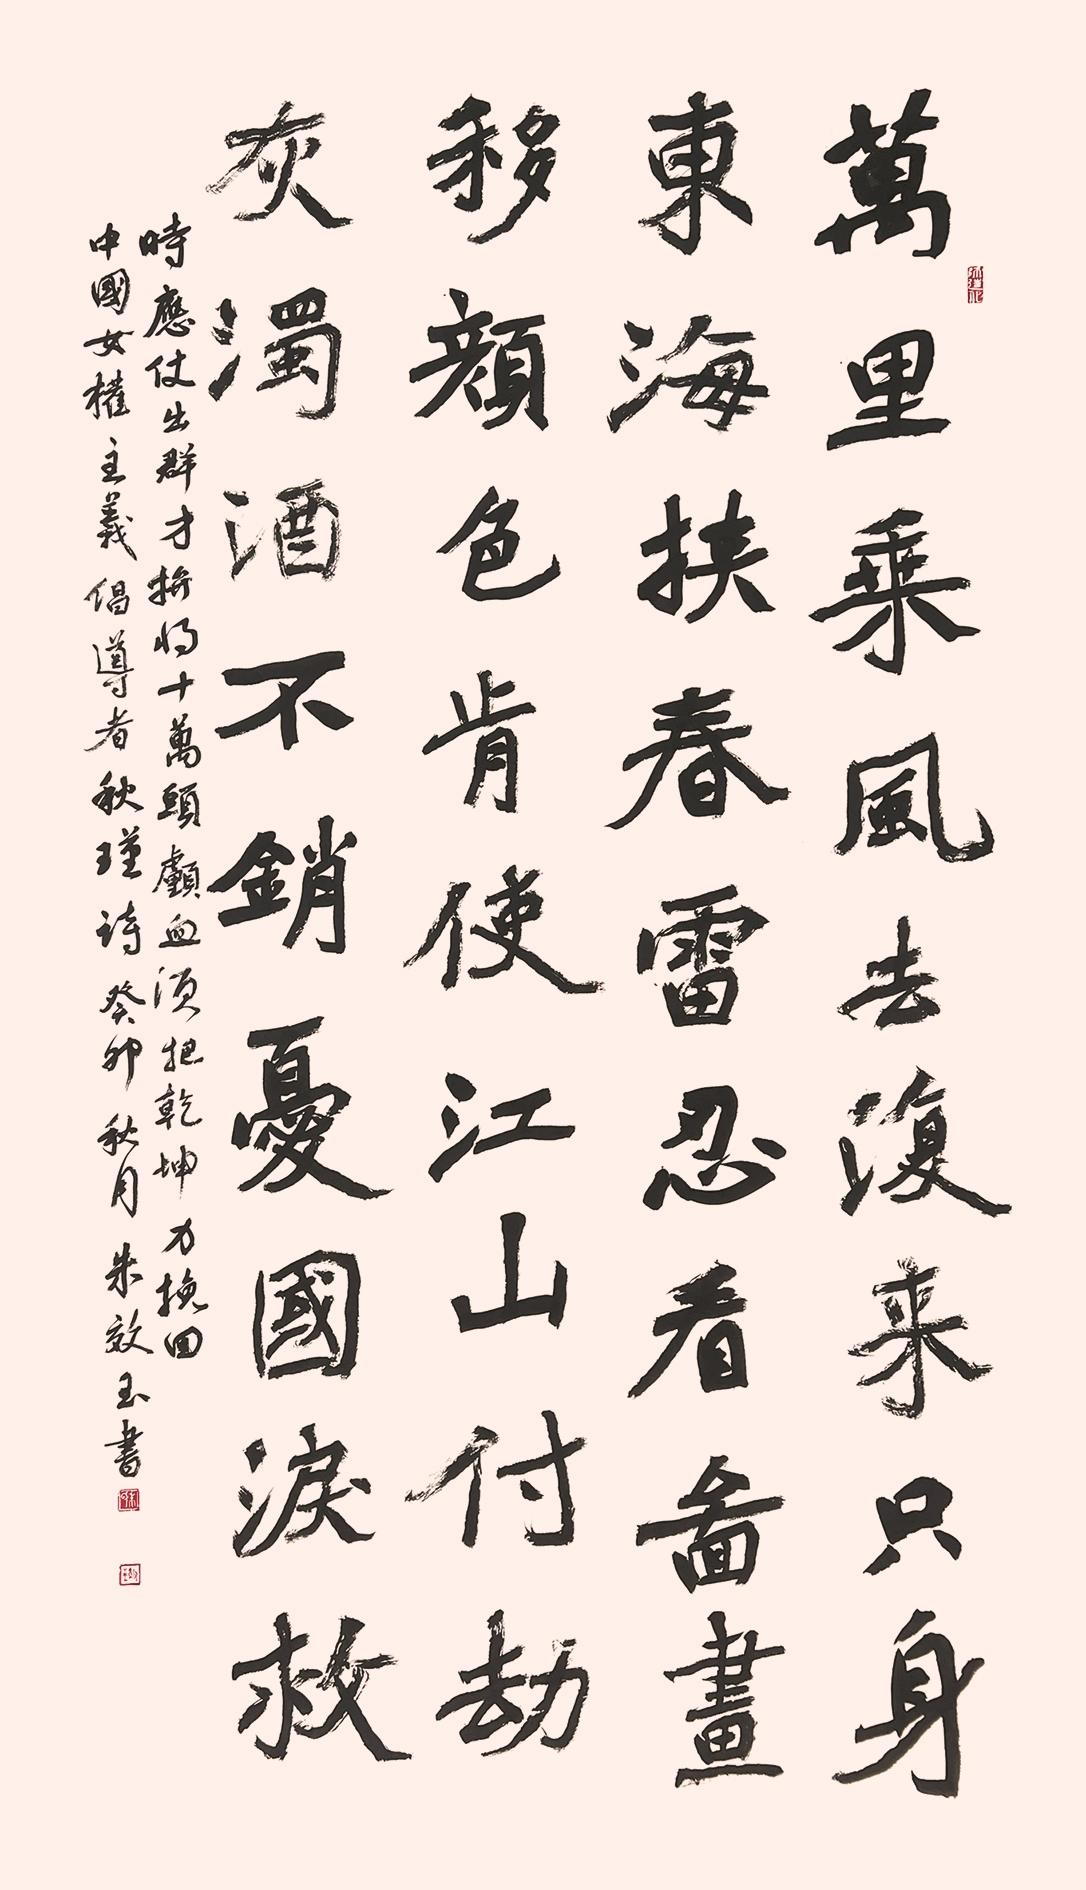 萬里乘風去復来只身
東海挾春雷忍看圖畫
移顔色肯使江山付劫
灰濁酒不銷憂國淚救
時應仗出群才拚将十萬頭顱血須把乾坤力挽回
中國女權主義倡導者秋瑾詩癸卯秋月朱效玉書